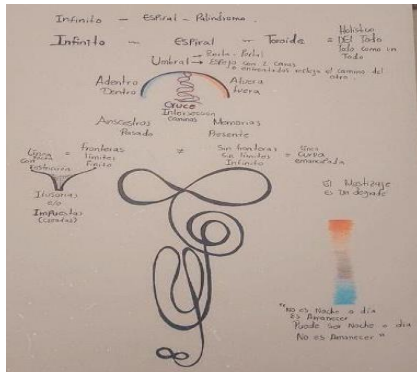 Infinito - ESPiral - Palindroma.
Infinito - ESPiral - Toroide = Holistica
DEL Todo
Todo como un
Todo
Umbral → Recta - Portal
→ Espejo con 2 caras
refleja el camino del
otro.
Adentro
Dentro
Afuera
Fuera
Cruce
Intersección
Ancestros
Pasado
Memorias
Presente
Línea
con
= Fronteras
Límites
Finito
≠
Sin fronteras
Sin límites
Infinito
= Línea
curva
Ilusorias
o
Impuestas
Mestizaje
Es Un degrade
"No es Noche o día
Es Amanecer
Puede ser Noche o día
No es Amanecer"